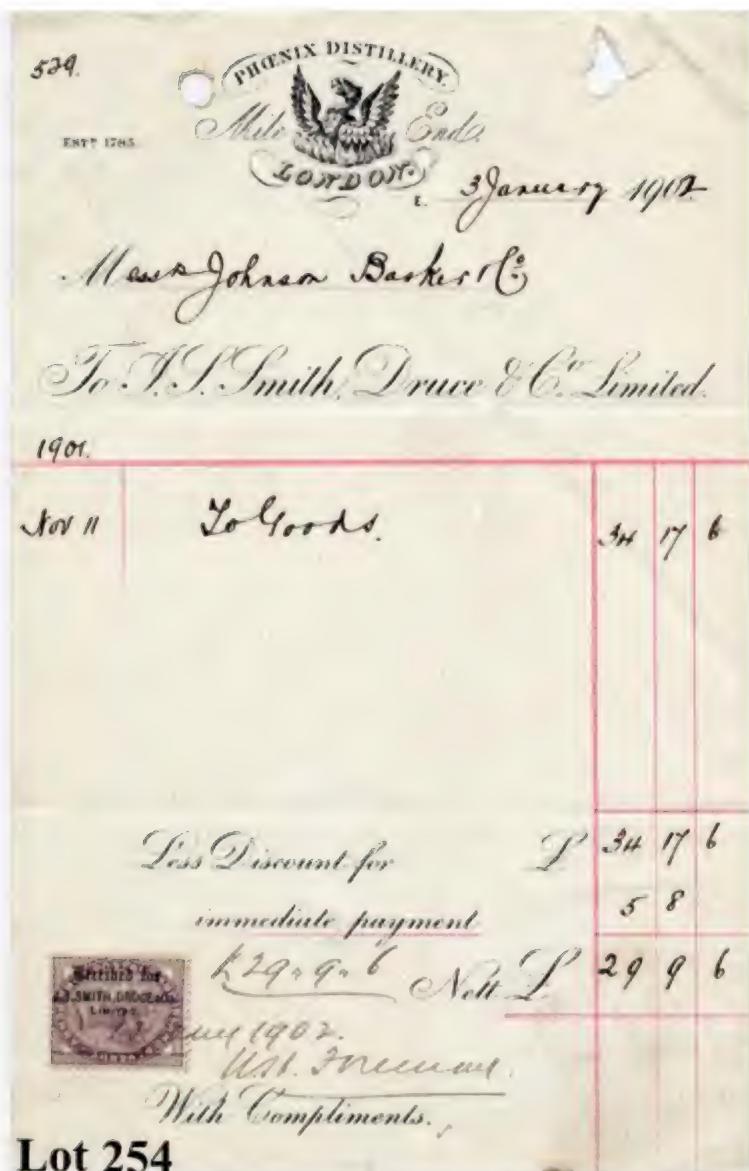 529.
PHŒNIX DISTILLERY.
Mile End.
ESTD 1785.
LONDON.
E. 3 January 1902
Messrs Johnson Barker & Co
To J. S. Smith, Druce & Co. Limited.
1901.
Nov 11 To Goods. 34 17 6
Less Discount for £ 34 17 6
immediate payment 5 8
£29 " 9 " 6 Nett £ 29 9 6
Received for
SMITH, DRUCE & Co.
LIMITED
1902.
Foreman
With Compliments.
Lot 254